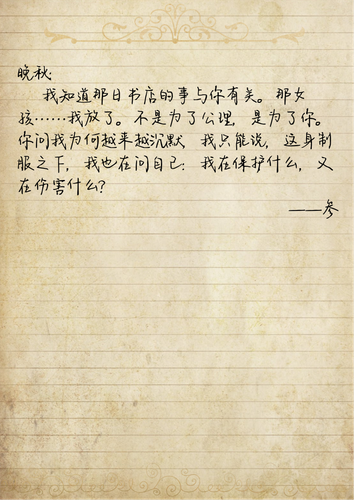 晚秋:
我知道那日书店的事与你有关。那女
孩……我放了。不是为了公理,是为了你。
你问我为何越来越沉默 我只能说,这身制
服之下,我也在问自己:我在保护什么,又
在伤害什么?
——参